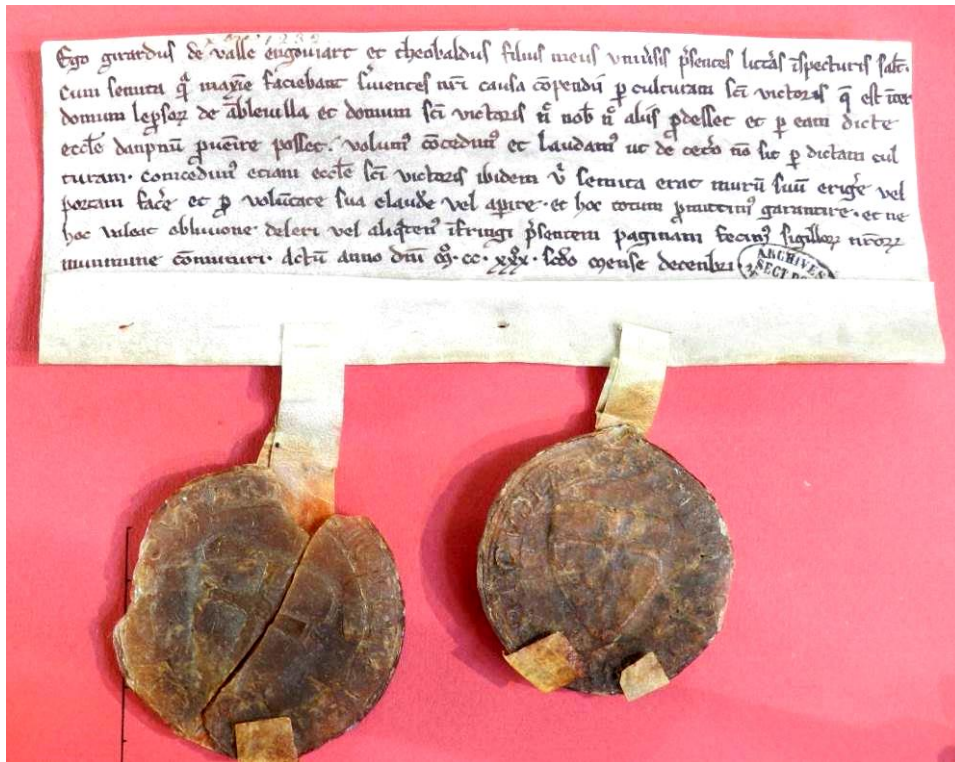 Ego girardus de valle engoviart et theobaldus filius meus univ̾sis p̃sentes litt̾as ĩspecturis salt̃.
Cum semita q̃ maxĩe faciebant s̾vientes nr̃i causa cõpendii ꝑ culturam sc̃i victoris q̃ est ĩter
domum lep̃sor̃ de ableuilla et domum sc̃i victoris ñ nob̃ ñ aliis ꝓdesset et ꝑ eam dicte
eccl̃e dampnũ ꝓuenire posset. volum᷒ cõcedim᷒ et laudam᷒ ut de cet̾o nõ sit ꝑ dictam cul
turam. concedim᷒ etiam eccl̃e sc̃i victoris ibidem u̾ semita erat murũ suũ erig̾e vel
portam fac̾e et ꝓ volũtate sua claud̾e vel apire. et hoc totum ꝓmittim᷒ garantire. et ne
hoc valeat oblivione deleri vel aliq̾ten᷒ ĩfringi p̃sentem paginam fecim᷒ sigillor̃ nr̃or̃
munimine cõmuniri. Actũ anno dñi m̊. cc. xxx̊. sc̃do mense decembri
ARCHIVES
SECT